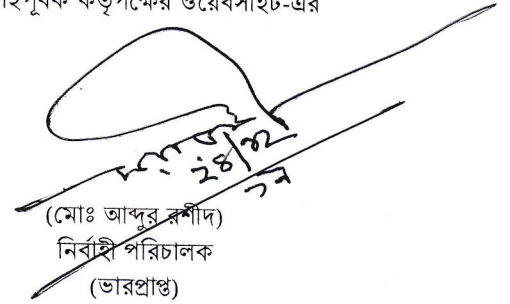 পূর্বক কর্তৃপক্ষের ওয়েবসাইট-এর
২৪/১২
(মোঃ আব্দুর রশীদ)
নির্বাহী পরিচালক
(ভারপ্রাপ্ত)